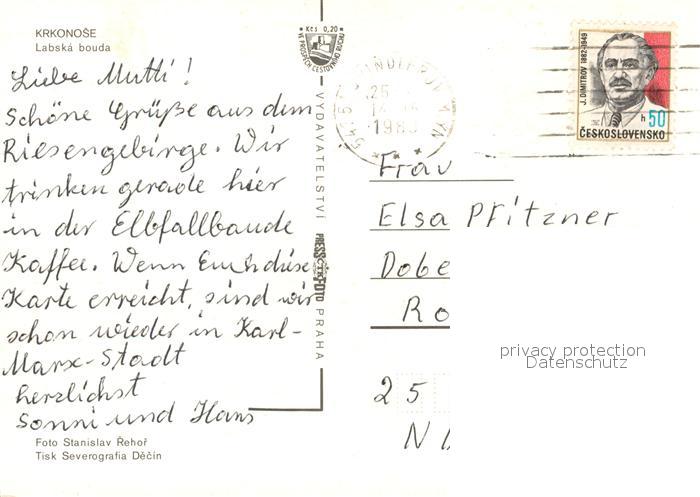 KRKONOŠE
Labská bouda
Liebe Mutti!
Schöne Grüße aus dem
Riesengebirge. Wir
trinken gerade hier
in der Elbfallbaude
Kaffee. Wenn Euch diese
Karte erreicht, sind wir
schon wieder in Karl-
Marx-Stadt
herzlichst
Sonni und Hans
Foto Stanislav Řehoř
Tisk Severografia Děčín
Kčs 0,20
VE PROSPĚCH CESTOVNÍHO RUCHU
VYDAVATELSTVÍ PRESSFOTO PRAHA
J. DIMITROV 1882-1949
h 50
ČESKOSLOVENSKO
Frau
Elsa Pfitzner
Dobe
Ro
25
privacy protection
Datenschutz